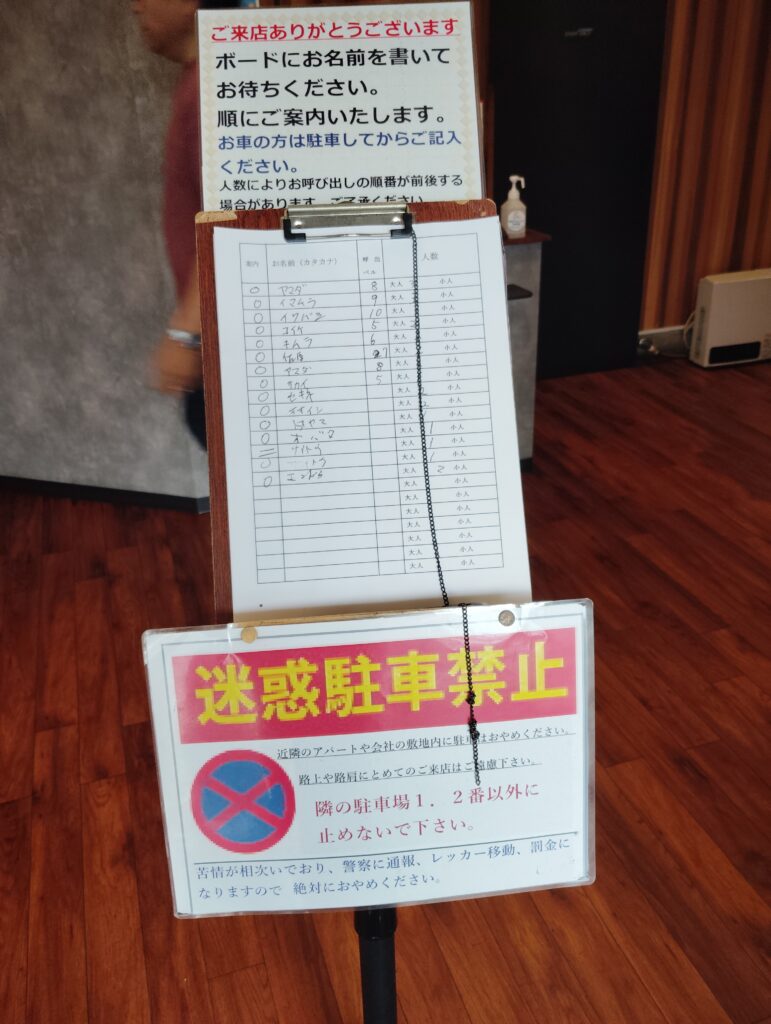 ご来店ありがとうございます
ボードにお名前を書いて
お待ちください。
順にご案内いたします。
お車の方は駐車してからご記入
ください。
人数によりお呼び出しの順番が前後する
場合があります。ご了承ください
案内 お名前（カタカナ） 呼出ベル 人数
○ ヤマダ 8 大人 小人
○ イマムラ 9 大人 小人
○ イワバシ 10 大人 小人
○ コイケ 5 大人 2 小人
○ キムラ 6 大人 小人
○ 7 大人 小人
○ ヤマダ 8 大人 小人
○ サカイ 5 大人 小人
○ セキネ 大人 2 小人
○ 大人 2 小人
○ 大人 1 小人
○ オバタ 大人 1 小人
サイトウ 大人 1 小人
○ 大人 2 小人
○ エンドウ 大人 小人
大人 小人
大人 小人
大人 小人
大人 小人
大人 小人
迷惑駐車禁止
近隣のアパートや会社の敷地内に駐車はおやめください。
路上や路肩にとめてのご来店はご遠慮下さい。
隣の駐車場１．２番以外に
止めないで下さい。
苦情が相次いでおり、警察に通報、レッカー移動、罰金に
なりますので 絶対におやめください。